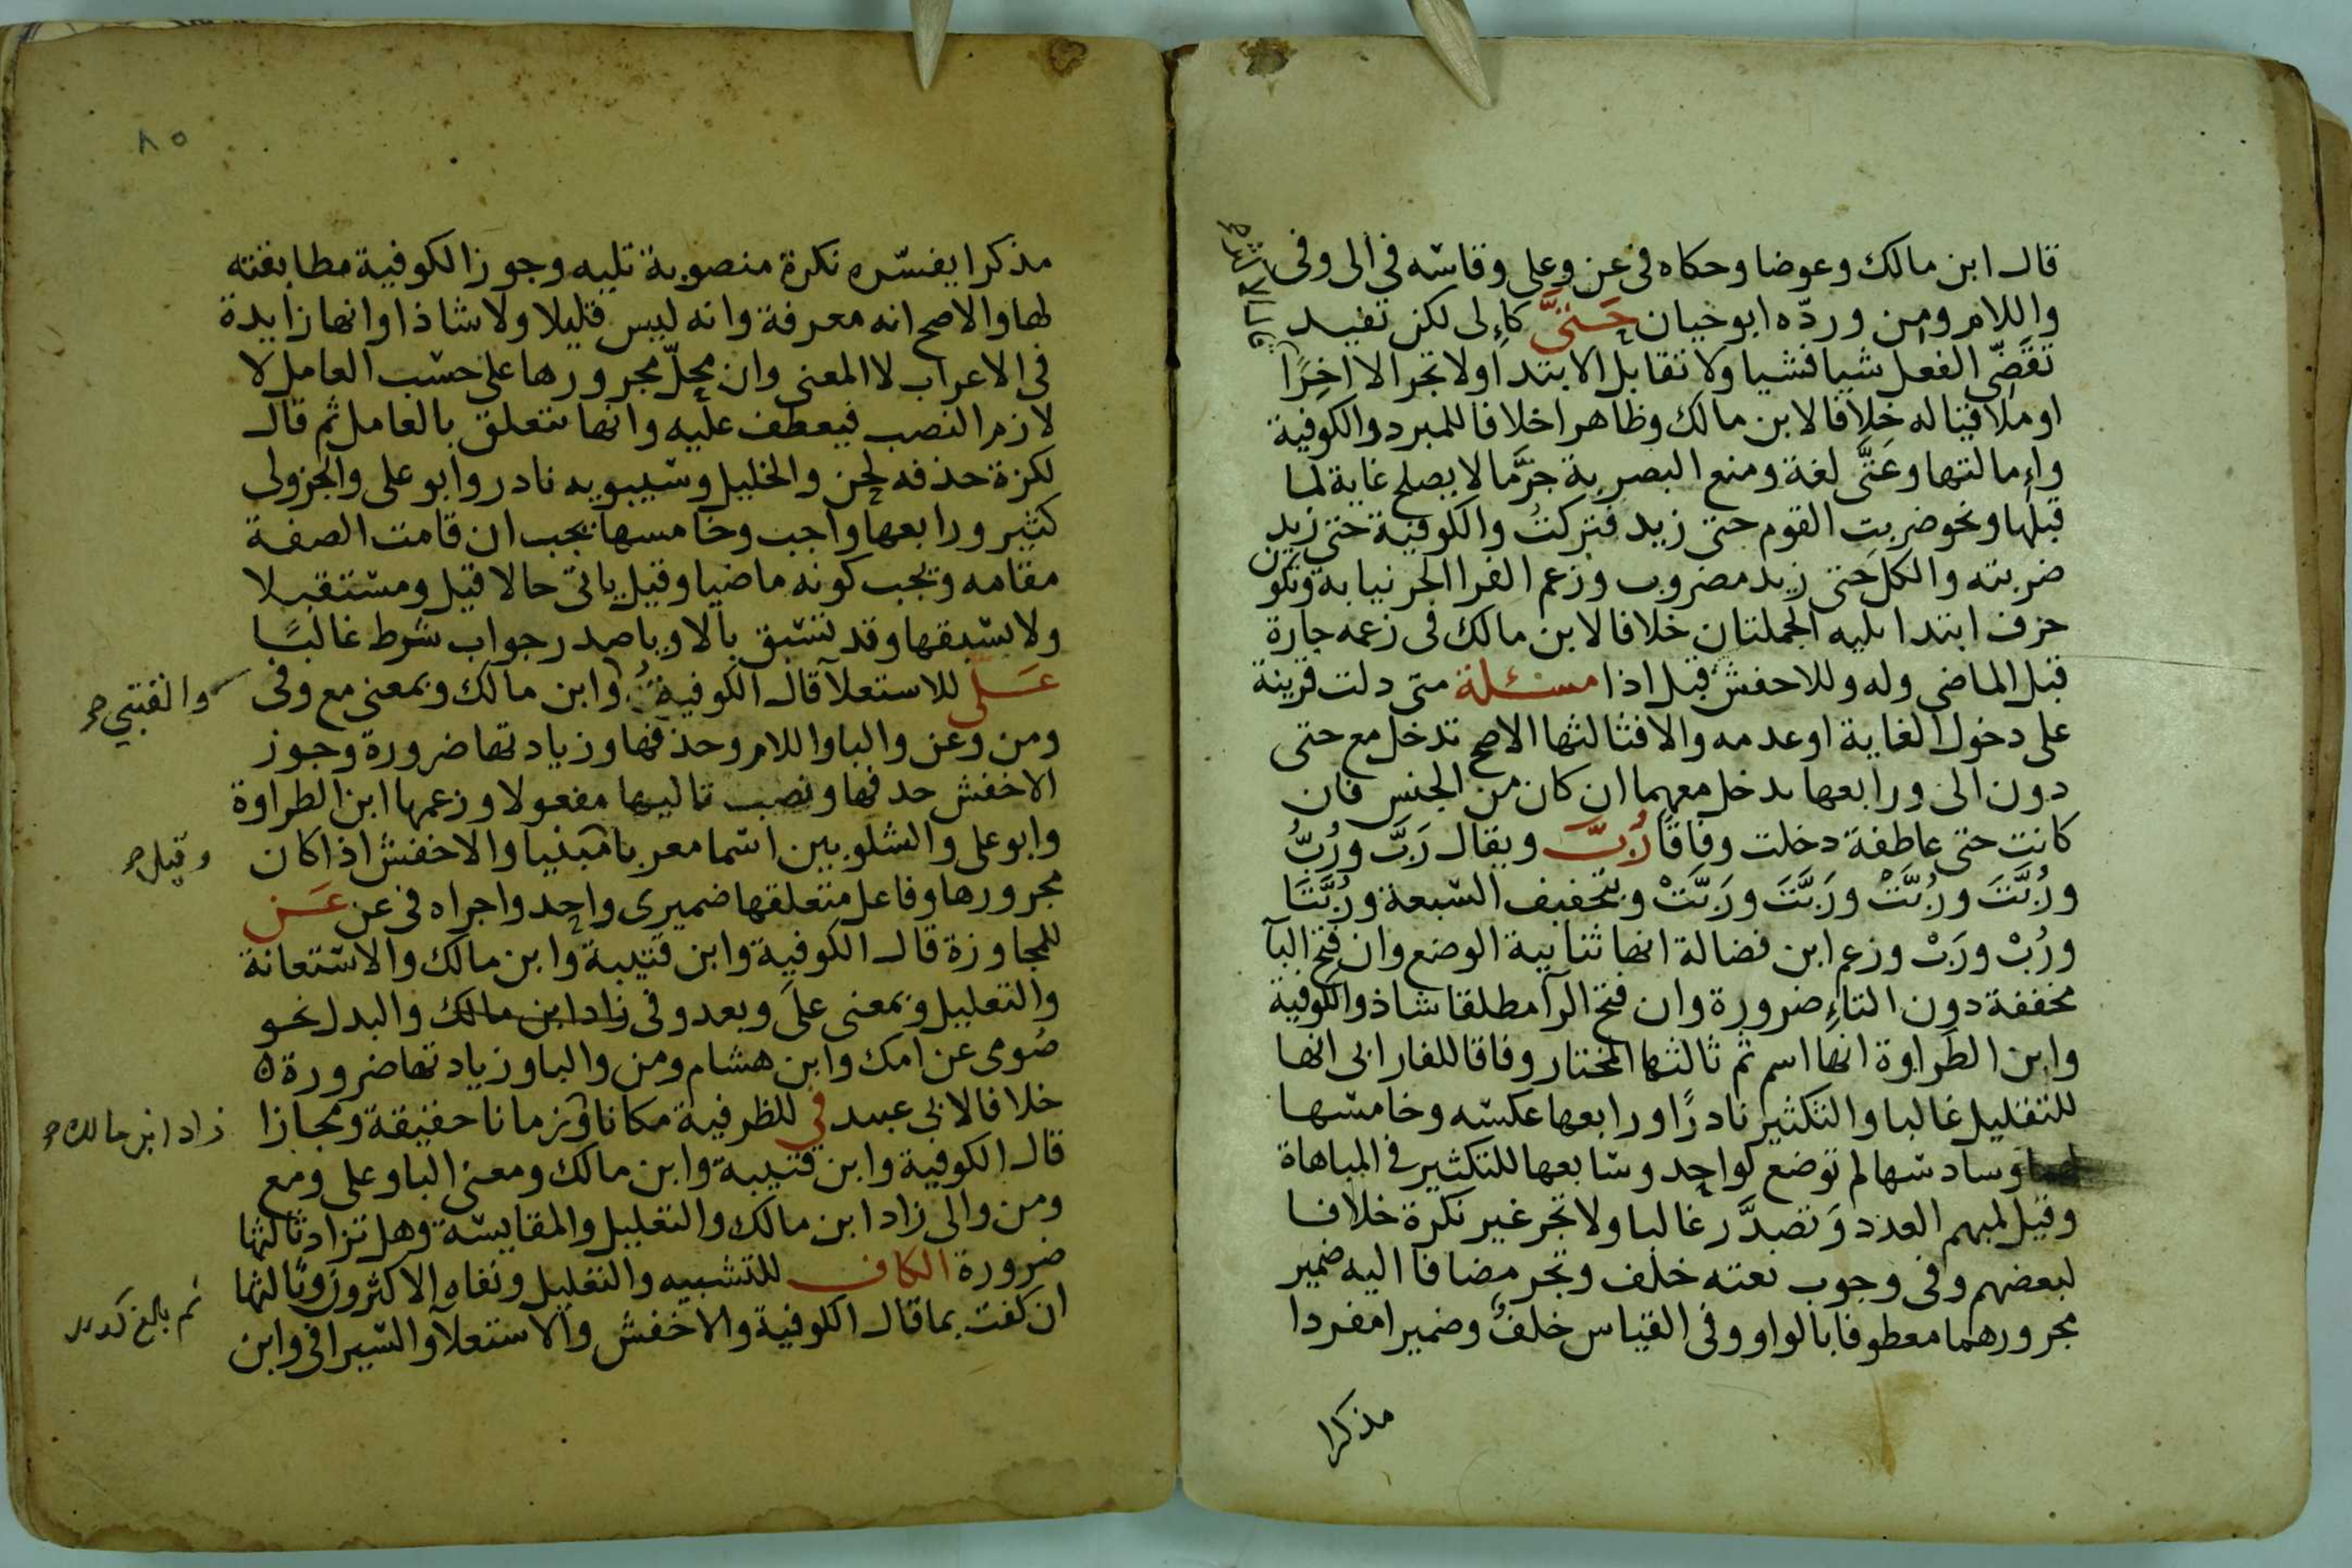 قال ابن مالك وعوضا وحكاه في عن وعلى وقاسه في الى وفي
واللام ومن ورده ابو حيان حَتىَّ كإلى لكن تفيد
تقضّى الفعل شيا فشيا ولا تقابل الابتدا ولا تجر الا اخِرًا
او ملاقيا له خلافا لابن مالك وظاهرا خلافا للمبرد والكوفية
وإمالتها وعَتَّى لغة ومنع البصرية جرَّ ما لا يصلح غاية لما
قبلها ونحو ضربت القوم حتى زيد فتركتُ والكوفية حتى زيد
ضربته والكل حتى زيد مضروب وزعم الفرا الجر نيابة وتكون
حرف ابتدا يليه الجملتان خلافا لابن مالك في زعمه جارة
قبل الماضى وله وللاخفش قبل اذا مسئلة متى دلت قرينة
على دخول الغاية او عدمه والا فثالثها الاصح تدخل مع حتى
دون الى ورابعها يدخل معهما ان كان من الجنس فان
كانت حتى عاطفة دخلت وفاقا رُبَّ ويقال رَبَّ ورُبُّ
ورُبَّتَ ورُبَّتْ ورَبَّتَ ورَبَّتْ وبتخفيف السبعة ورُبَّتَا
ورُبْ ورَبْ وزعم ابن فضالة انها ثنائية الوضع وان فتح البآ
مخففة دون التاءِ ضرورة وان فتح الرآ مطلقا شاذ والكوفية
وابن الطراوة انها اسم ثم ثالثها المختار وفاقا للفارابى انها
للتقليل غالبا والتكثير نادرًا ورابعها عكسه وخامسها
لهما وسادسها لم توضع لواحد وسابعها للتكثير في المباهاة
وقيل لمبهم العدد وَتصدَّر غالبا ولا تجر غير نكرة خلافا
لبعضهم وفى وجوب نعته خلف وتجر مضافا اليه ضمير
مجرورهما معطوفا بالواو وفى القياس خلفٌ وضميرا مفردا
مذكرا
٨٥
مذكرا يفسّره نكرة منصوبة تليه وجوز الكوفية مطابقته
لها والاصح انه معرفة وانه ليس قليلا ولا شاذا وانها زايدة
في الاعراب لا المعنى وان محلّ مجرورها على حسب العامل لا
لازم النصب فيعطف عليه وانها تتعلق بالعامل ثم قال
لكزة حذفه لحن والخليل وسيبويه نادر وابو على والجزولى
كثير ورابعها واجب وخامسها يجب ان قامت الصفة
مقامه ويجب كونه ماضيا وقيل ياتى حالا قيل ومستقبلا
ولا يسبقها وقد تسبق بالا ويا صدر جواب شرط غالبًا
عَلَى للاستعلآ قال الكوفية وابن مالك وبمعنى مع وفى
والقتبي صح
ومن وعن والبا واللام وحذفها وزيادتها ضرورة وجوز
الاخفش حذفها ونصب تاليها مفعولا وزعمها ابن الطراوة
وابو على والشلوبين اسما معربا مبنيا والاخفش اذا كان
وقيل صح
مجرورها وفاعل متعلقها ضميرى واحد واجراه في عن عَن
للمجاوزة قال الكوفية وابن قتيبة وابن مالك والاستعانة
والتعليل وبمعنى على وبعد وفى زاد ابن مالك والبدل نحو
صُومى عن امك وابن هشام ومن والبا وزيادتها ضرورة
خلافا لابى عبيد في للظرفية مكانا وزمانا حقيقة ومجازا
زاد ابن مالك صح
قال الكوفية وابن قتيبة وابن مالك ومعنى البا وعلى ومع
ومن والى زاد ابن مالك والتعليل والمقايسة وهل تزاد ثالثها
ضرورة الكاف للتشبيه والتعليل ونفاه الاكثرون وثالثها
ان كفت بما قال الكوفية والاخفش والاستعلآ والسيرافى وابن